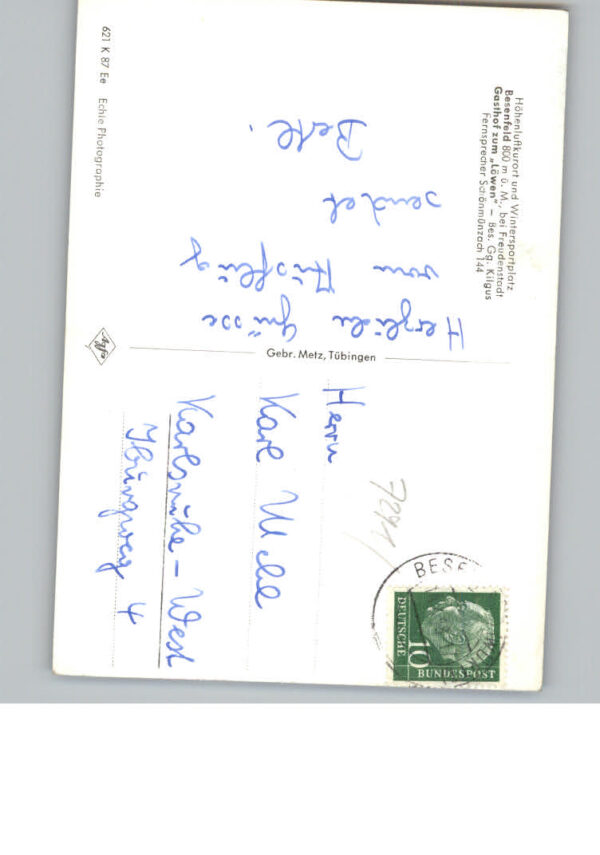 Höhenluftkurort und Wintersportplatz
Besenfeld 800 m ü. M., bei Freudenstadt
Gasthof zum „Löwen" – Bes. Gg. Kilgus
Fernsprecher Schönmünzach 144
Herzliche Grüsse
vom Ausflug
sendet
621 K 87 Ee Echle Photographie
Gebr. Metz, Tübingen
Herrn
Karl
Karlsruhe - West
4
7291/
BESE
DEUTSCHE
10
BUNDESPOST